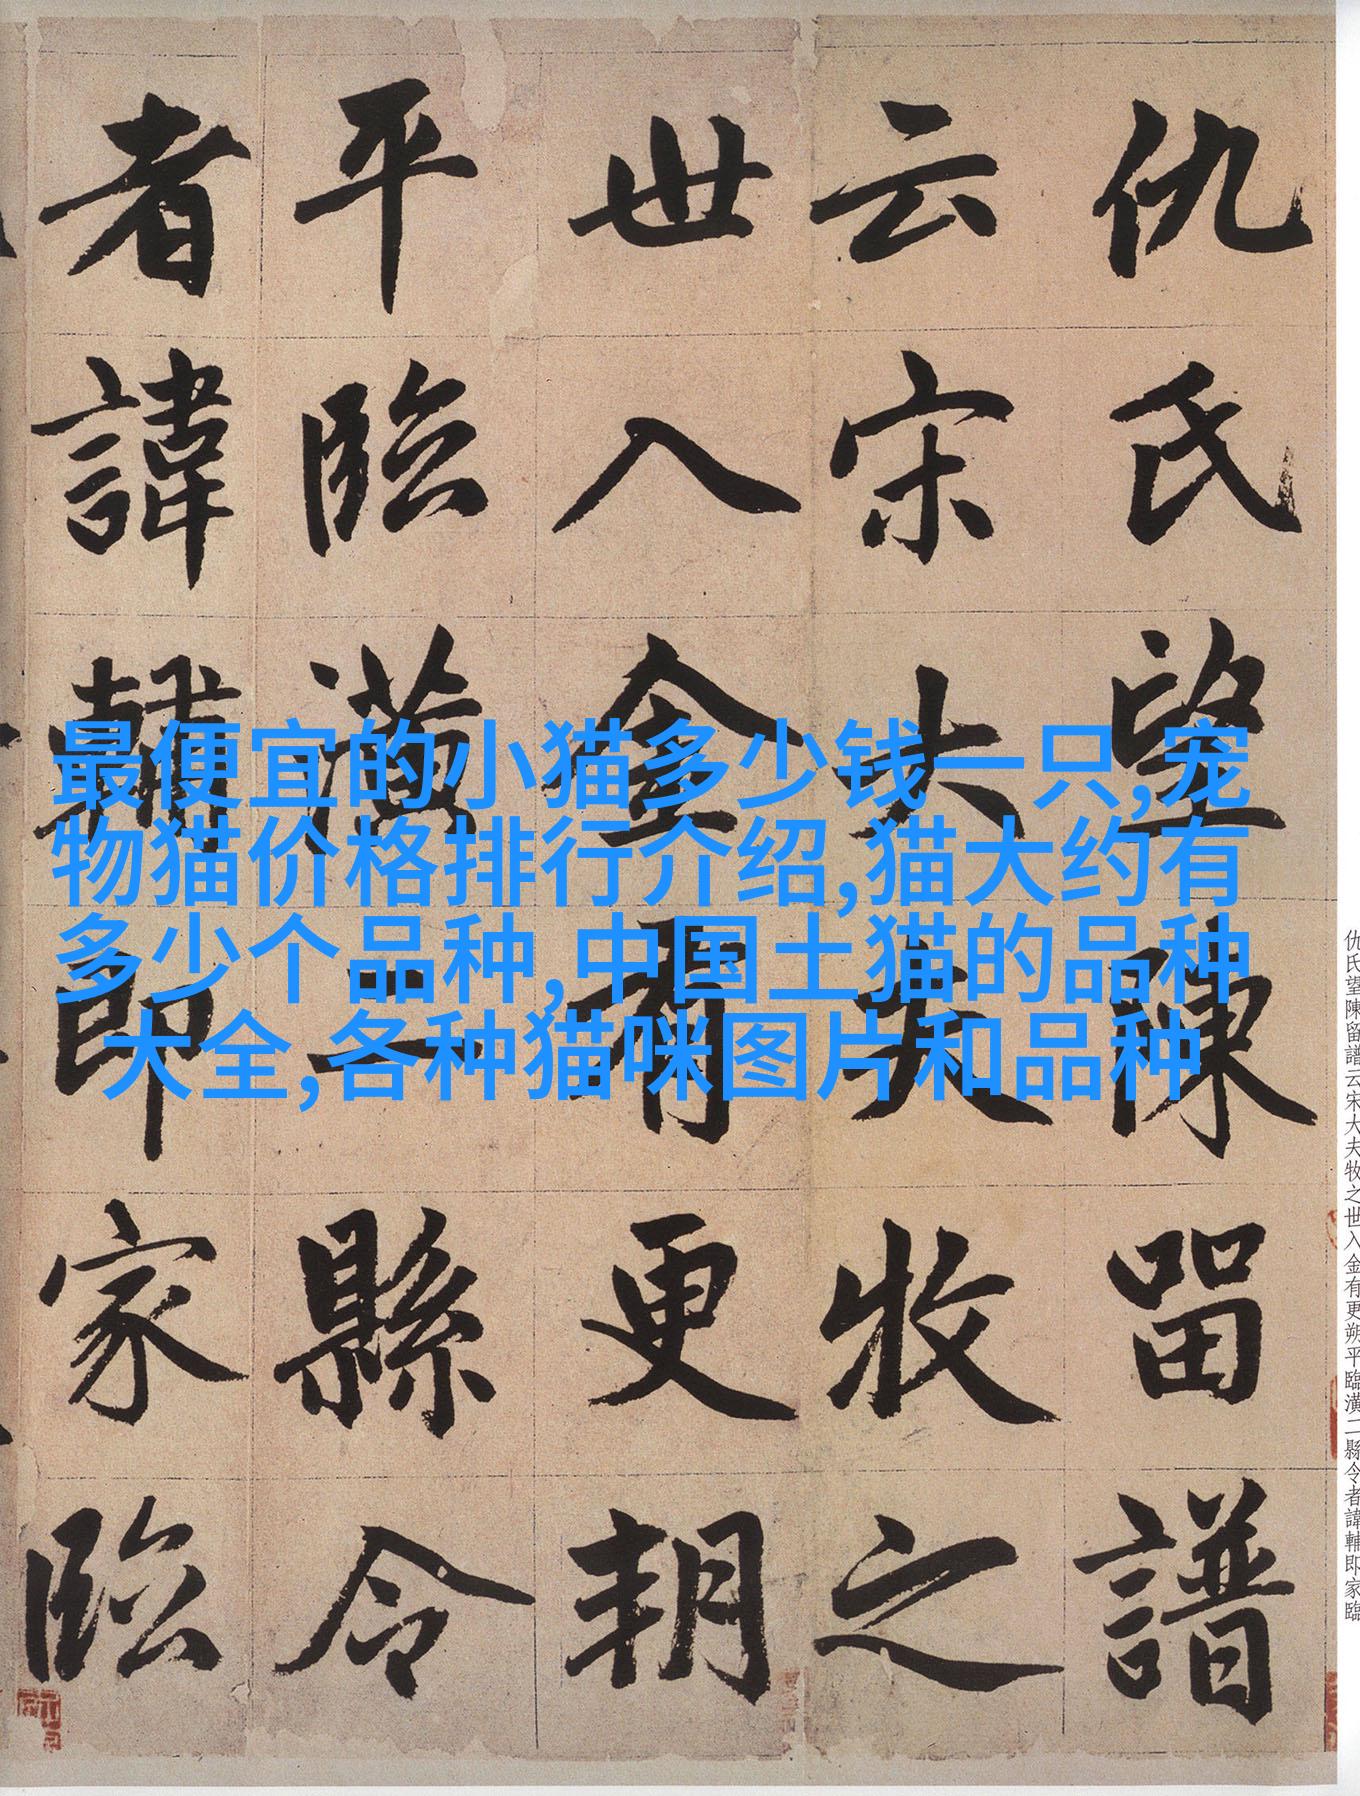 仇氏望陳留譜
云宋大夫牧之
世入金有更朔
平臨潢二縣令
者諱輔即家臨
最便宜的小猫多少钱一只,宠
物猫价格排行介绍,猫大约有
多少个品种,中国土猫的品种
大全,各种猫咪图片和品种
仇氏望陳留譜云宋大夫牧之世入金有更朔平臨潢二縣令者諱輔即家臨